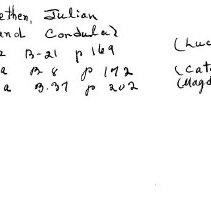 ethen, Julian
and Condular
a B-21 p 169 (Luc
a B-8 p 172 (Cat
a B-37 p 202 (Magd